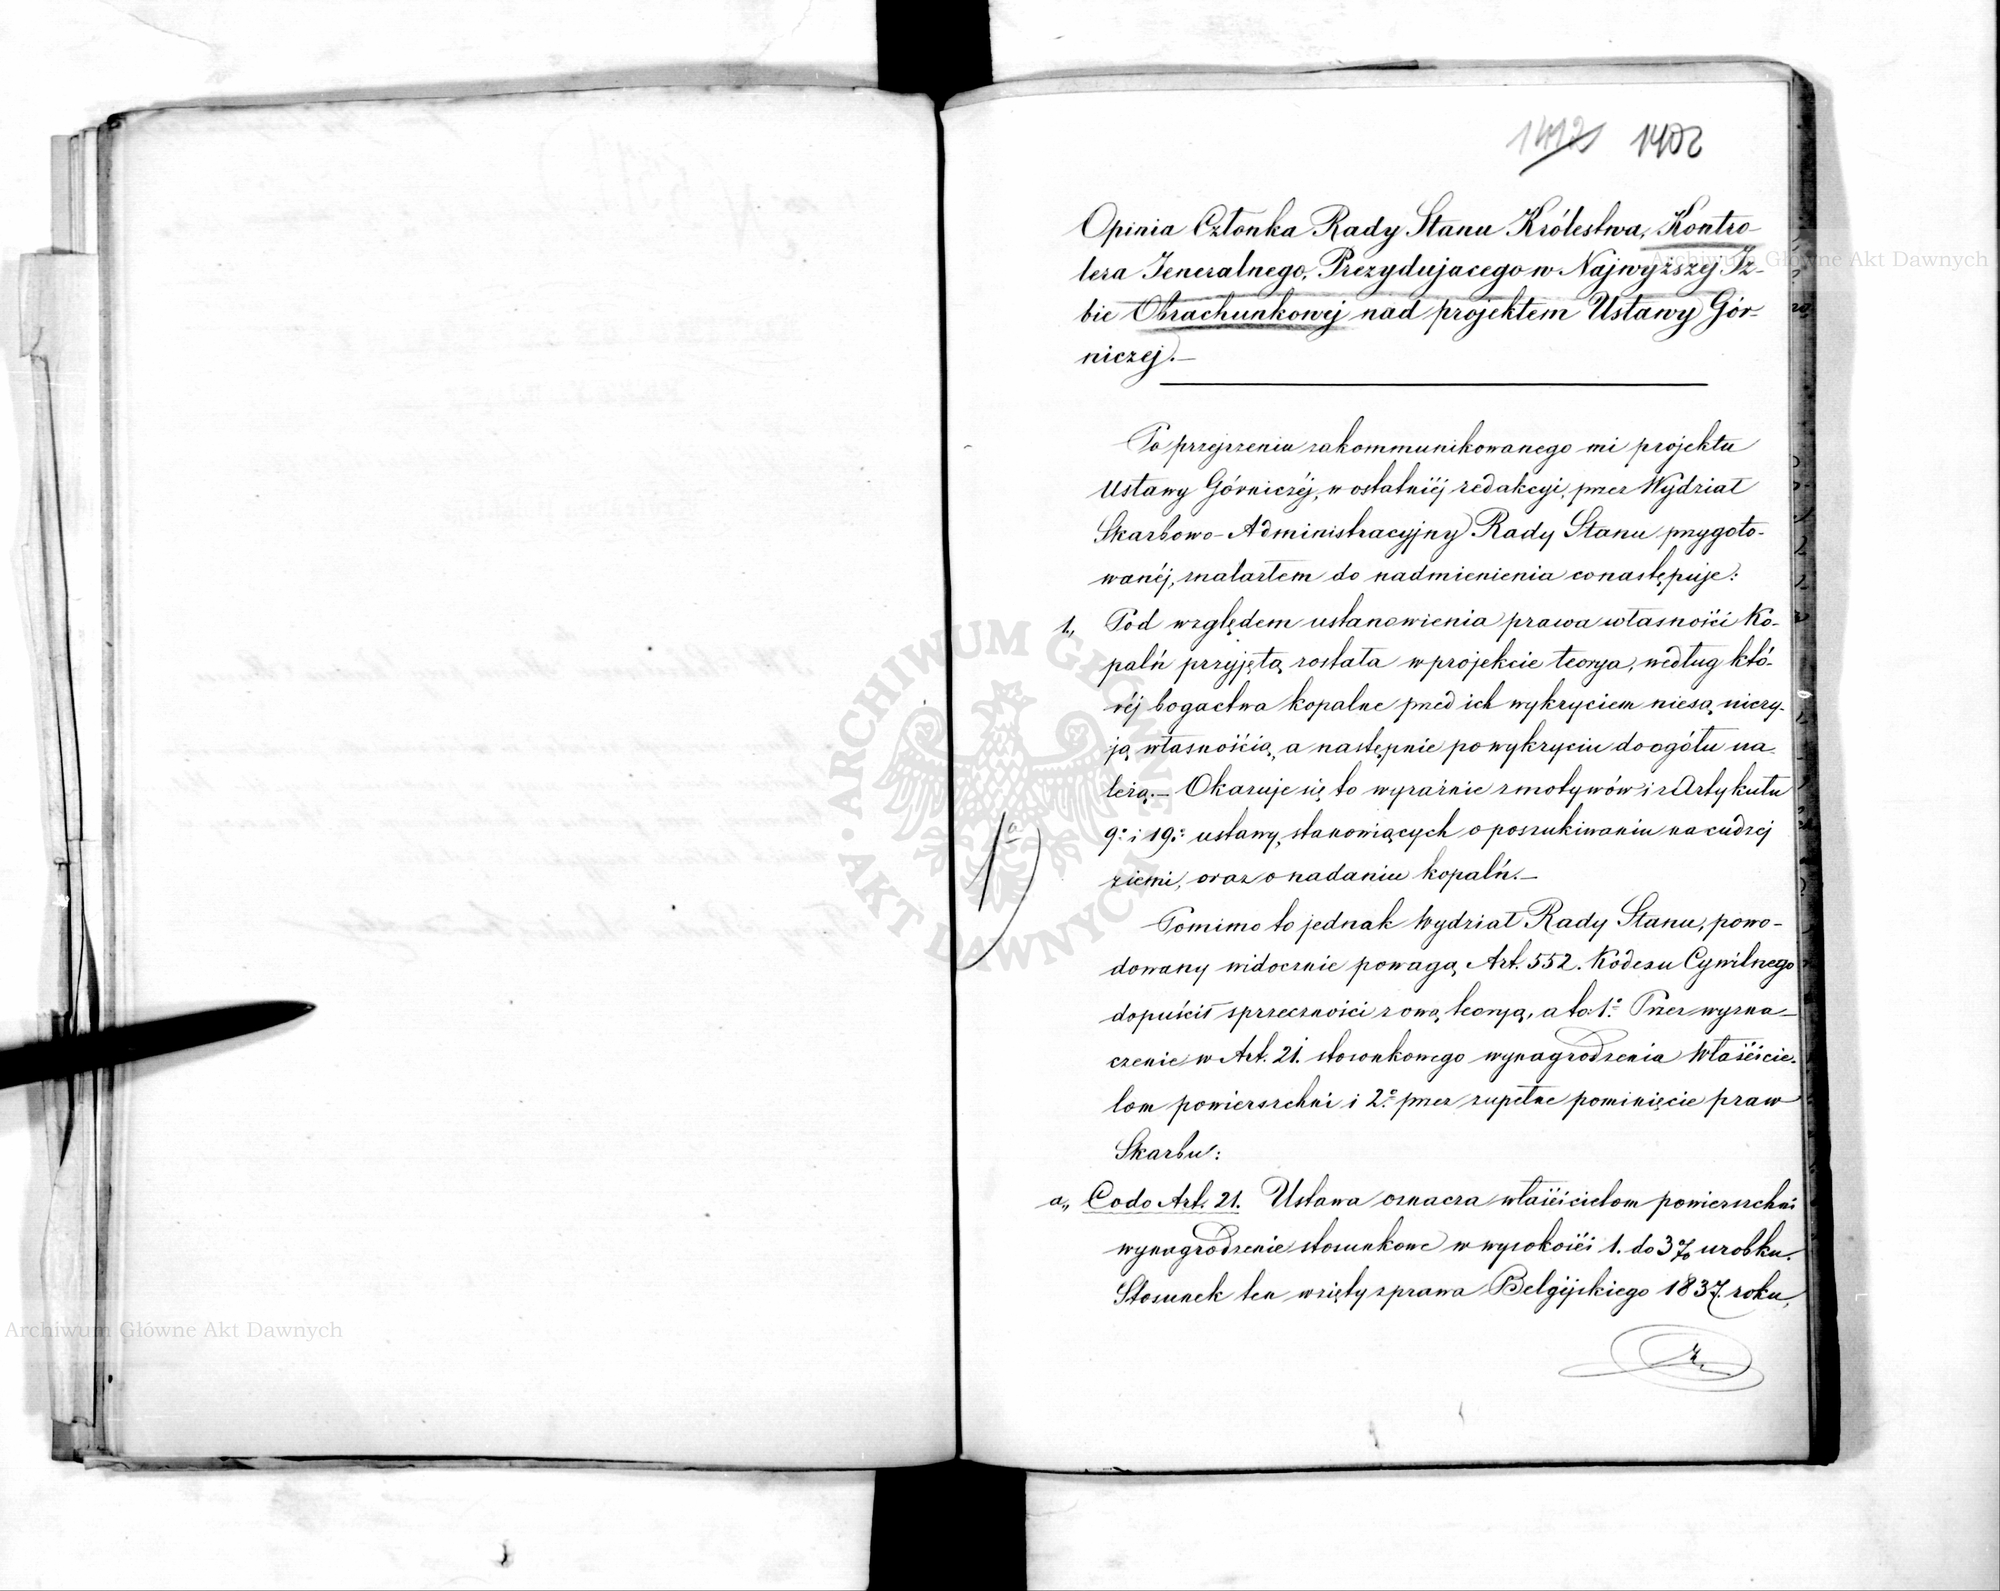 1412 1402
Opinia Członka Rady Stanu Królestwa, Kontro-
lera Jeneralnego, Prezydujacego w Najwyższej Iz-
bie Obrachunkowej nad projektem Ustawy Gór-
niczej.—
Po przejrzeniu zakommunikowanego mi projektu
Ustawy Górniczéj, w ostatniéj redakcyi, przez Wydział
Skarbowo-Administracyjny Rady Stanu przygoto-
wanéj, znalazłem do nadmienienia co następuje:
1., Pod względem ustanowienia prawa własności Ko-
palń przyjętą została w projekcie teorya, według któ-
réj bogactwa kopalne przed ich wykryciem nie są niczy-
ją własnością, a następnie po wykryciu do ogółu na-
leżą.— Okazuje się to wyraźnie z motywów i z Artykułu
9º i 19º ustawy, stanowiących o poszukiwaniu na cudzej
ziemi, oraz o nadaniu kopalń.—
1º)
Pomimo to jednak Wydział Rady Stanu, powo-
dowany widocznie powagą Art. 552. Kodexu Cywilnego
dopuścił sprzeczności z ową teoryą, a to: 1º Przez wyzna-
czenie w Art. 21. stosonkowego wynagrodzenia Właścicie-
lom powierzchni i 2º przez zupełne pominięcie praw
Skarbu:
a., Co do Art. 21. Ustawa oznacza właścicielom powierzchni
wynagrodzenie stosunkowe w wysokości 1. do 3% urobku.
Stosunek ten wzięty z prawa Belgijskiego 1837. roku,
ARCHIWUM GŁÓWNE AKT DAWNYCH
Archiwum Główne Akt Dawnych
Archiwum Główne Akt Dawnych